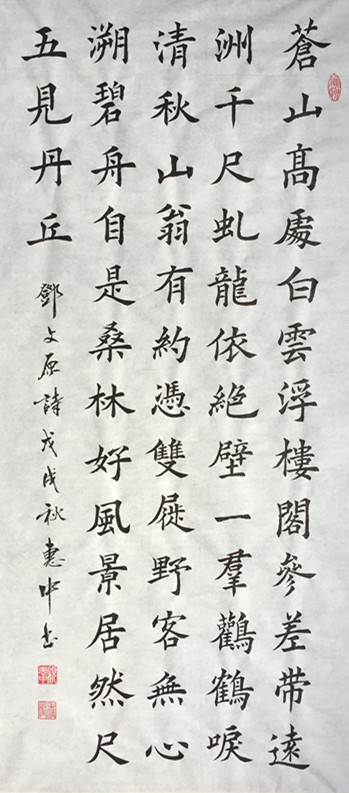 蒼山高處白雲浮樓閣參差帶遠
洲千尺虬龍依絕壁一羣鸛鶴唳
清秋山翁有約憑雙屐野客無心
溯碧舟自是桑林好風景居然尺
五見丹丘
鄧文原詩戊戌秋惠中書